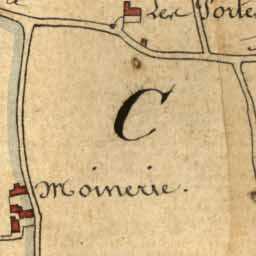 Les Portes
C
Moinerie.